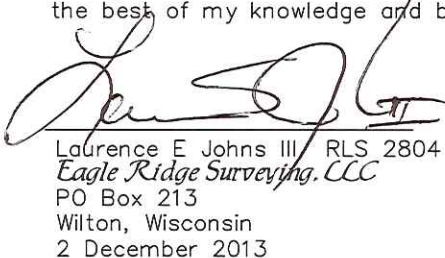 the best of my knowledge and b
Laurence E Johns III RLS 2804
Eagle Ridge Surveying, LLC
PO Box 213
Wilton, Wisconsin
2 December 2013